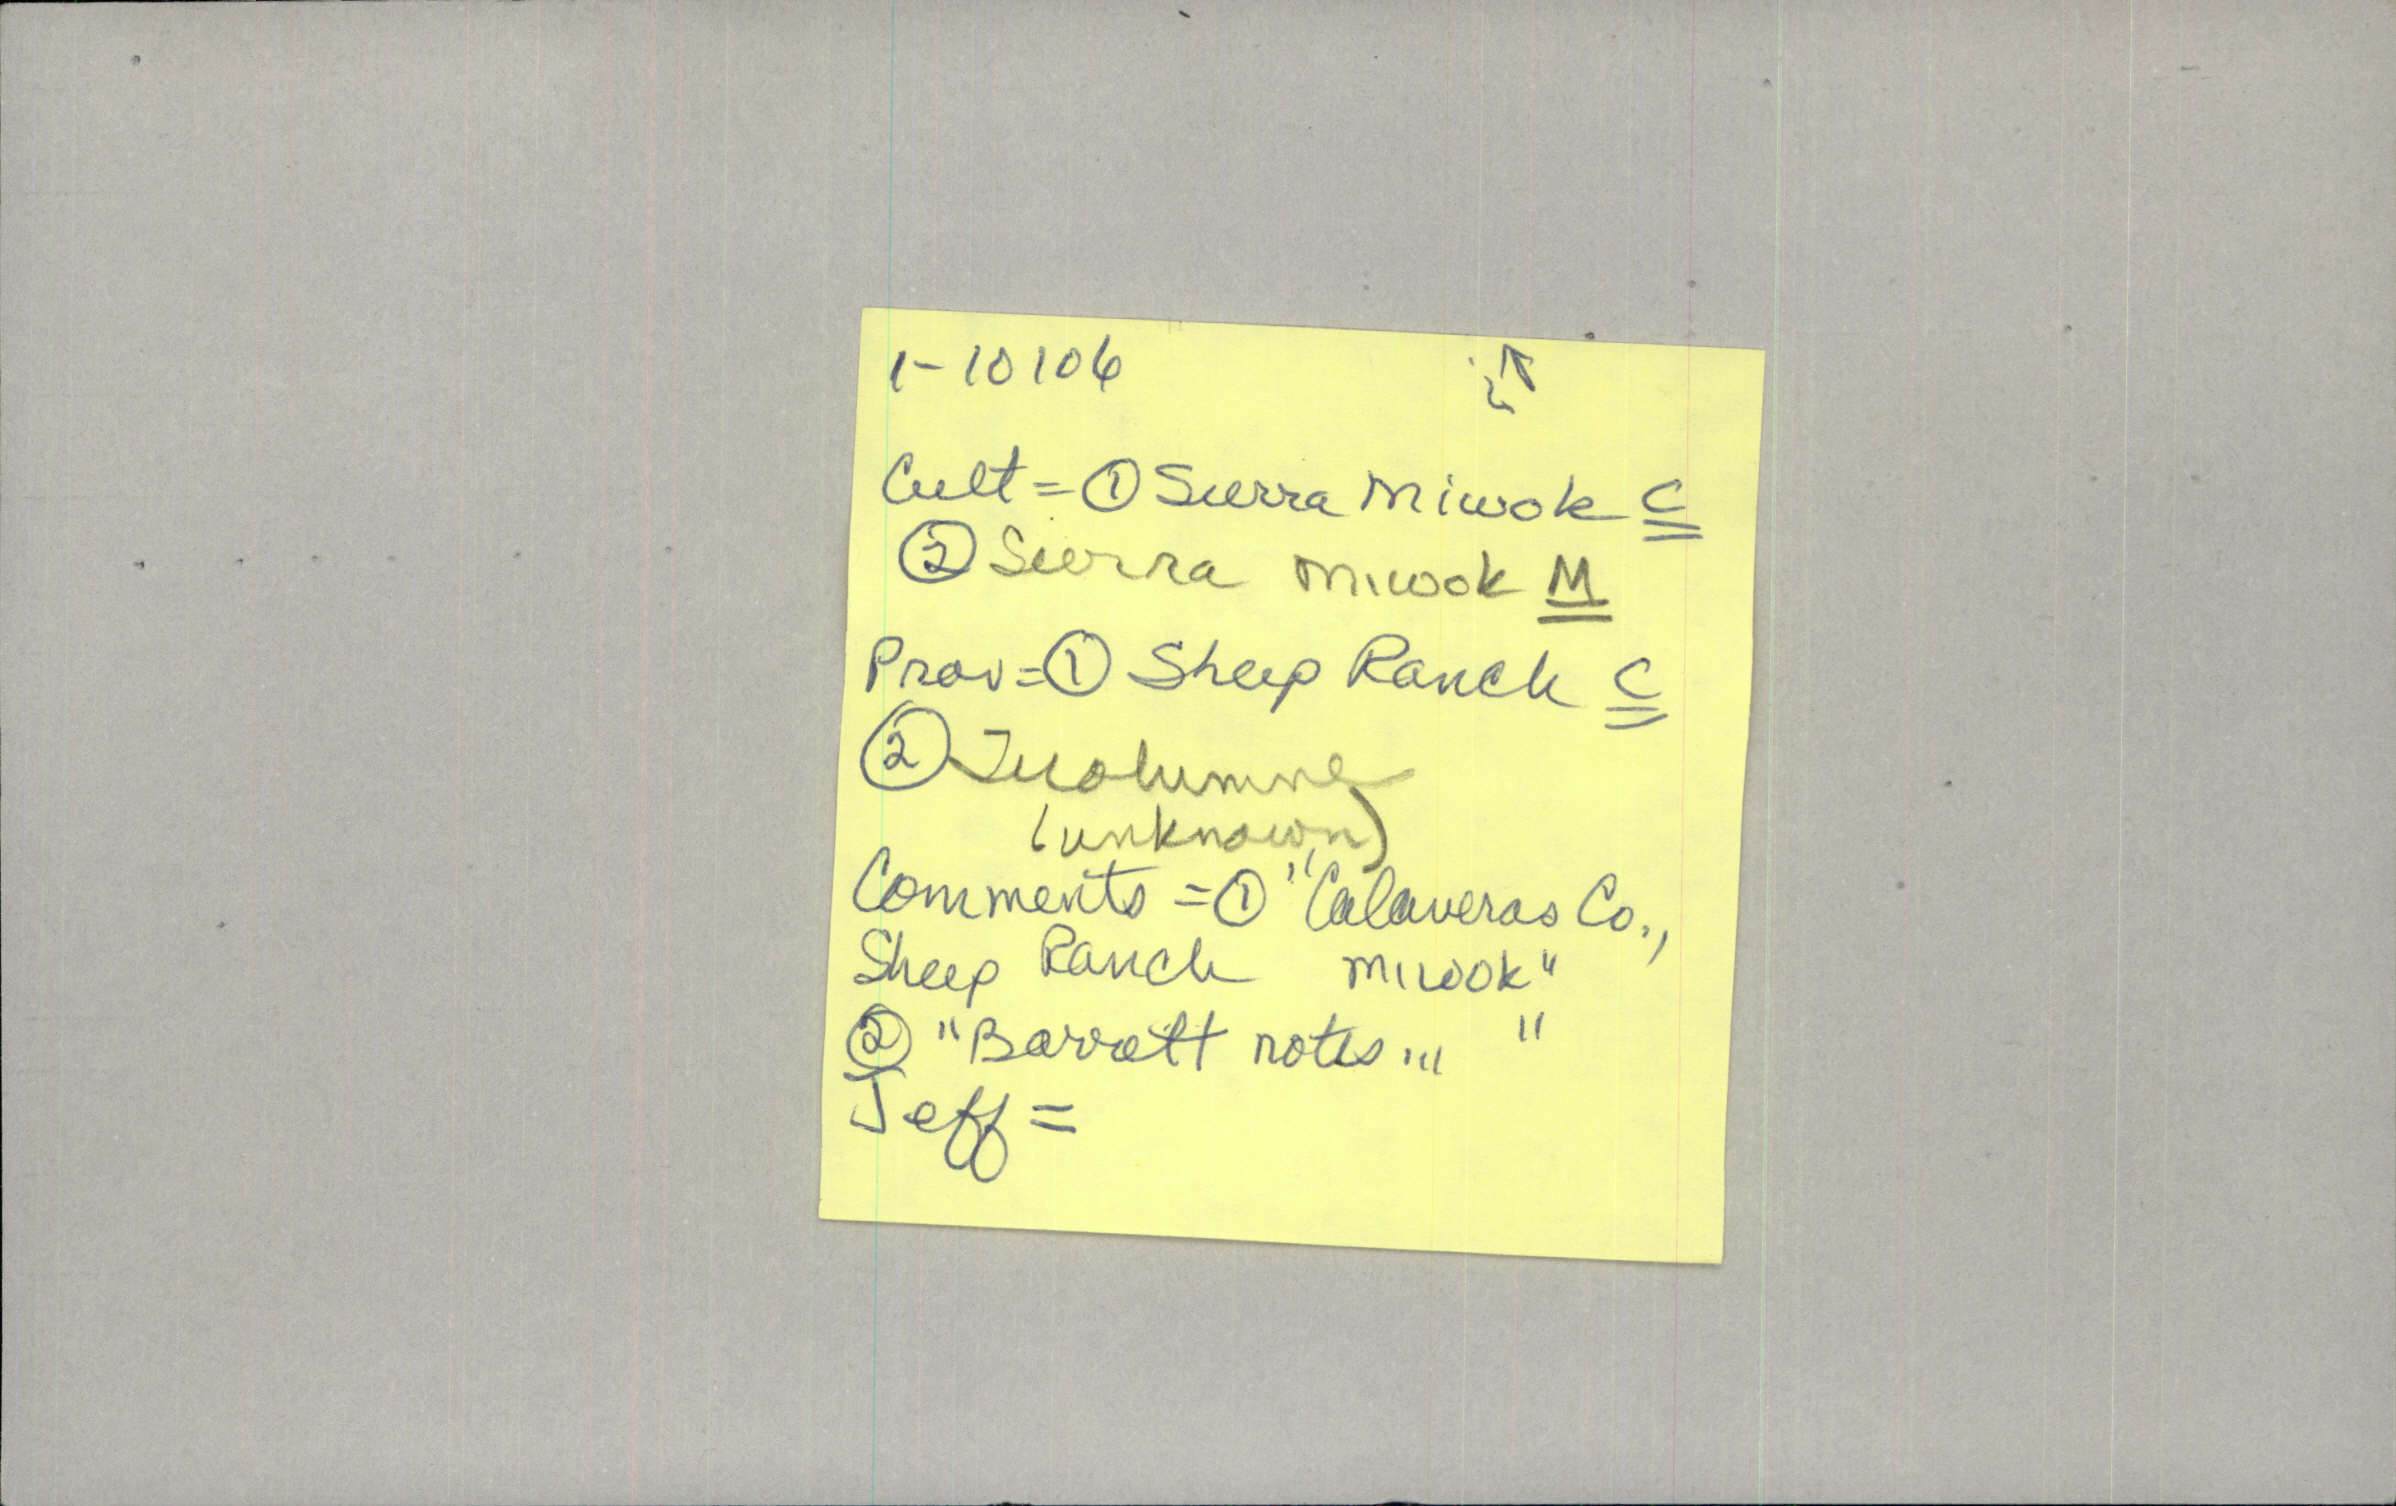 1-10106
Cult = ① Sierra Miwok C
② Sierra Miwok M
Prov = ① Sheep Ranch C
② Tuolumne
(unknown)
Comments = ① "Calaveras Co.,
Sheep Ranch Miwok"
② "Barrett notes... "
Jeff =